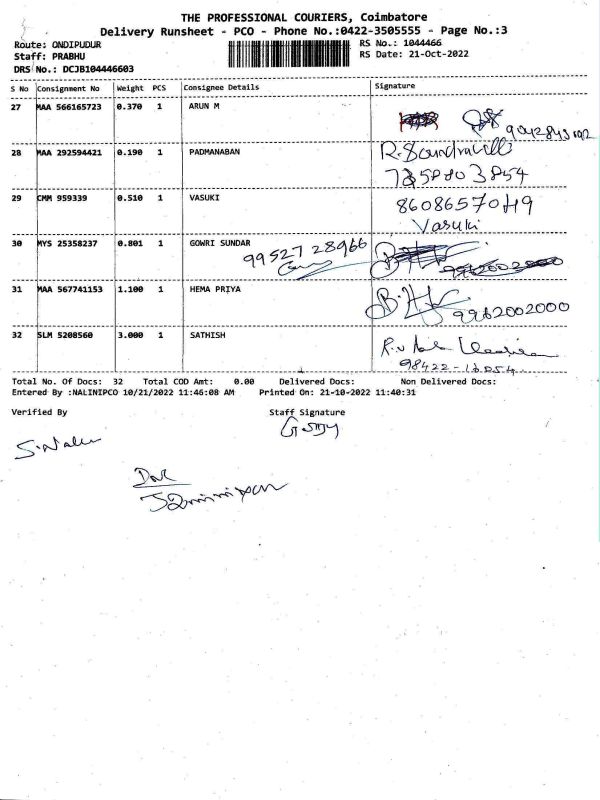 THE PROFESSIONAL COURIERS, Coimbatore
Delivery Runsheet - PCO - Phone No.:0422-3505555 - Page No.:3
Route: ONDIPUDUR RS No.: 1044466
Staff: PRABHU RS Date: 21-Oct-2022
DRS No.: DCJB104446603
S No Consignment No Weight PCS Consignee Details Signature
27 MAA 566165723 0.370 1 ARUN M
28 MAA 292594421 0.190 1 PADMANABAN R. Soundravalli
7358803854
29 CMM 959339 0.510 1 VASUKI 8608657049
Vasuki
30 MYS 25358237 0.801 1 GOWRI SUNDAR 99527 28966
31 MAA 567741153 1.100 1 HEMA PRIYA 9962002000
32 SLM 5208560 3.000 1 SATHISH
Total No. Of Docs: 32 Total COD Amt: 0.00 Delivered Docs: Non Delivered Docs:
Entered By :NALINIPCO 10/21/2022 11:46:08 AM Printed On: 21-10-2022 11:40:31
Verified By Staff Signature